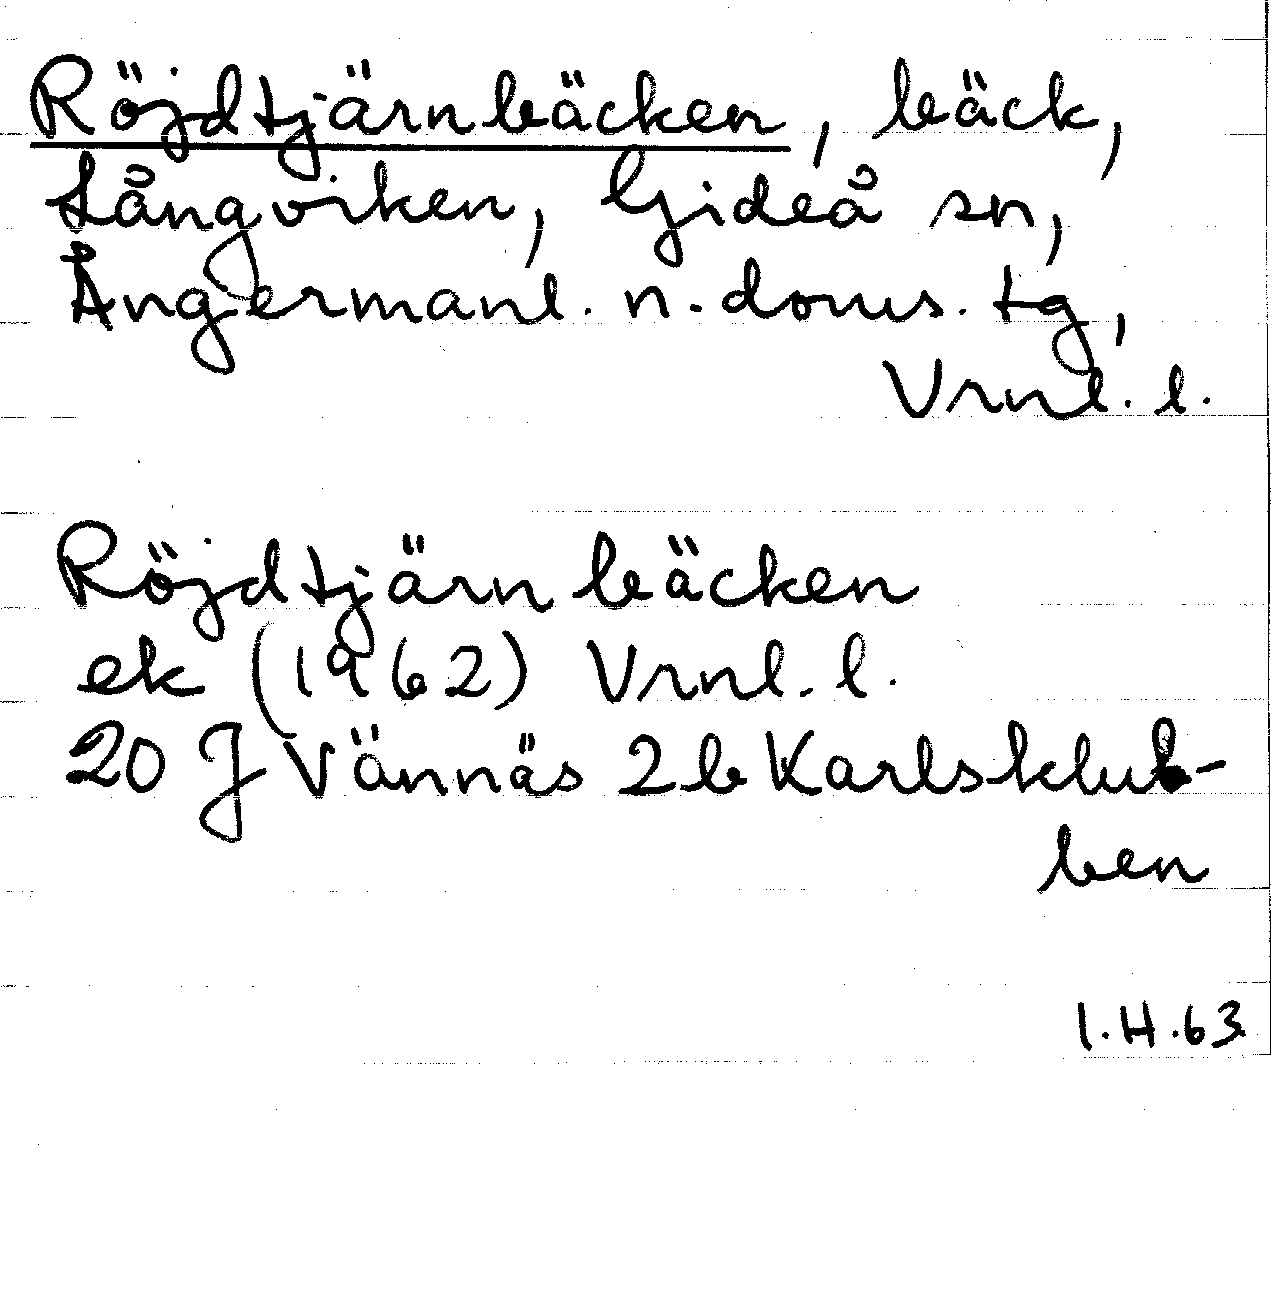 Röjdtjärnbäcken, bäck,
Långviken, Gideå sn,
Ångermanl. n. doms. tg,
Vrnl. l.
Röjdtjärnbäcken
ek (1962) Vrnl. l.
20 J Vännäs 2 b Karlsklub-
ben
I.H.63